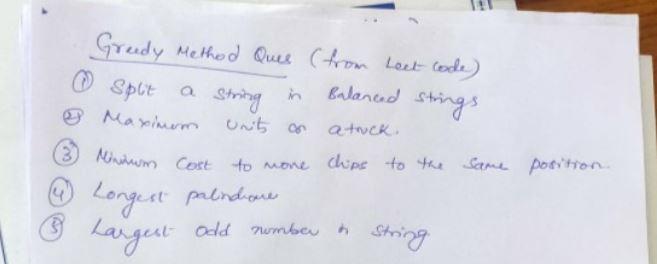 Greedy Method Ques (from Leet code)
① Split a string in Balanced strings
② Maximum Units on a truck.
③ Minimum Cost to move chips to the same position.
④ Longest palindrome
⑤ Largest odd number in string